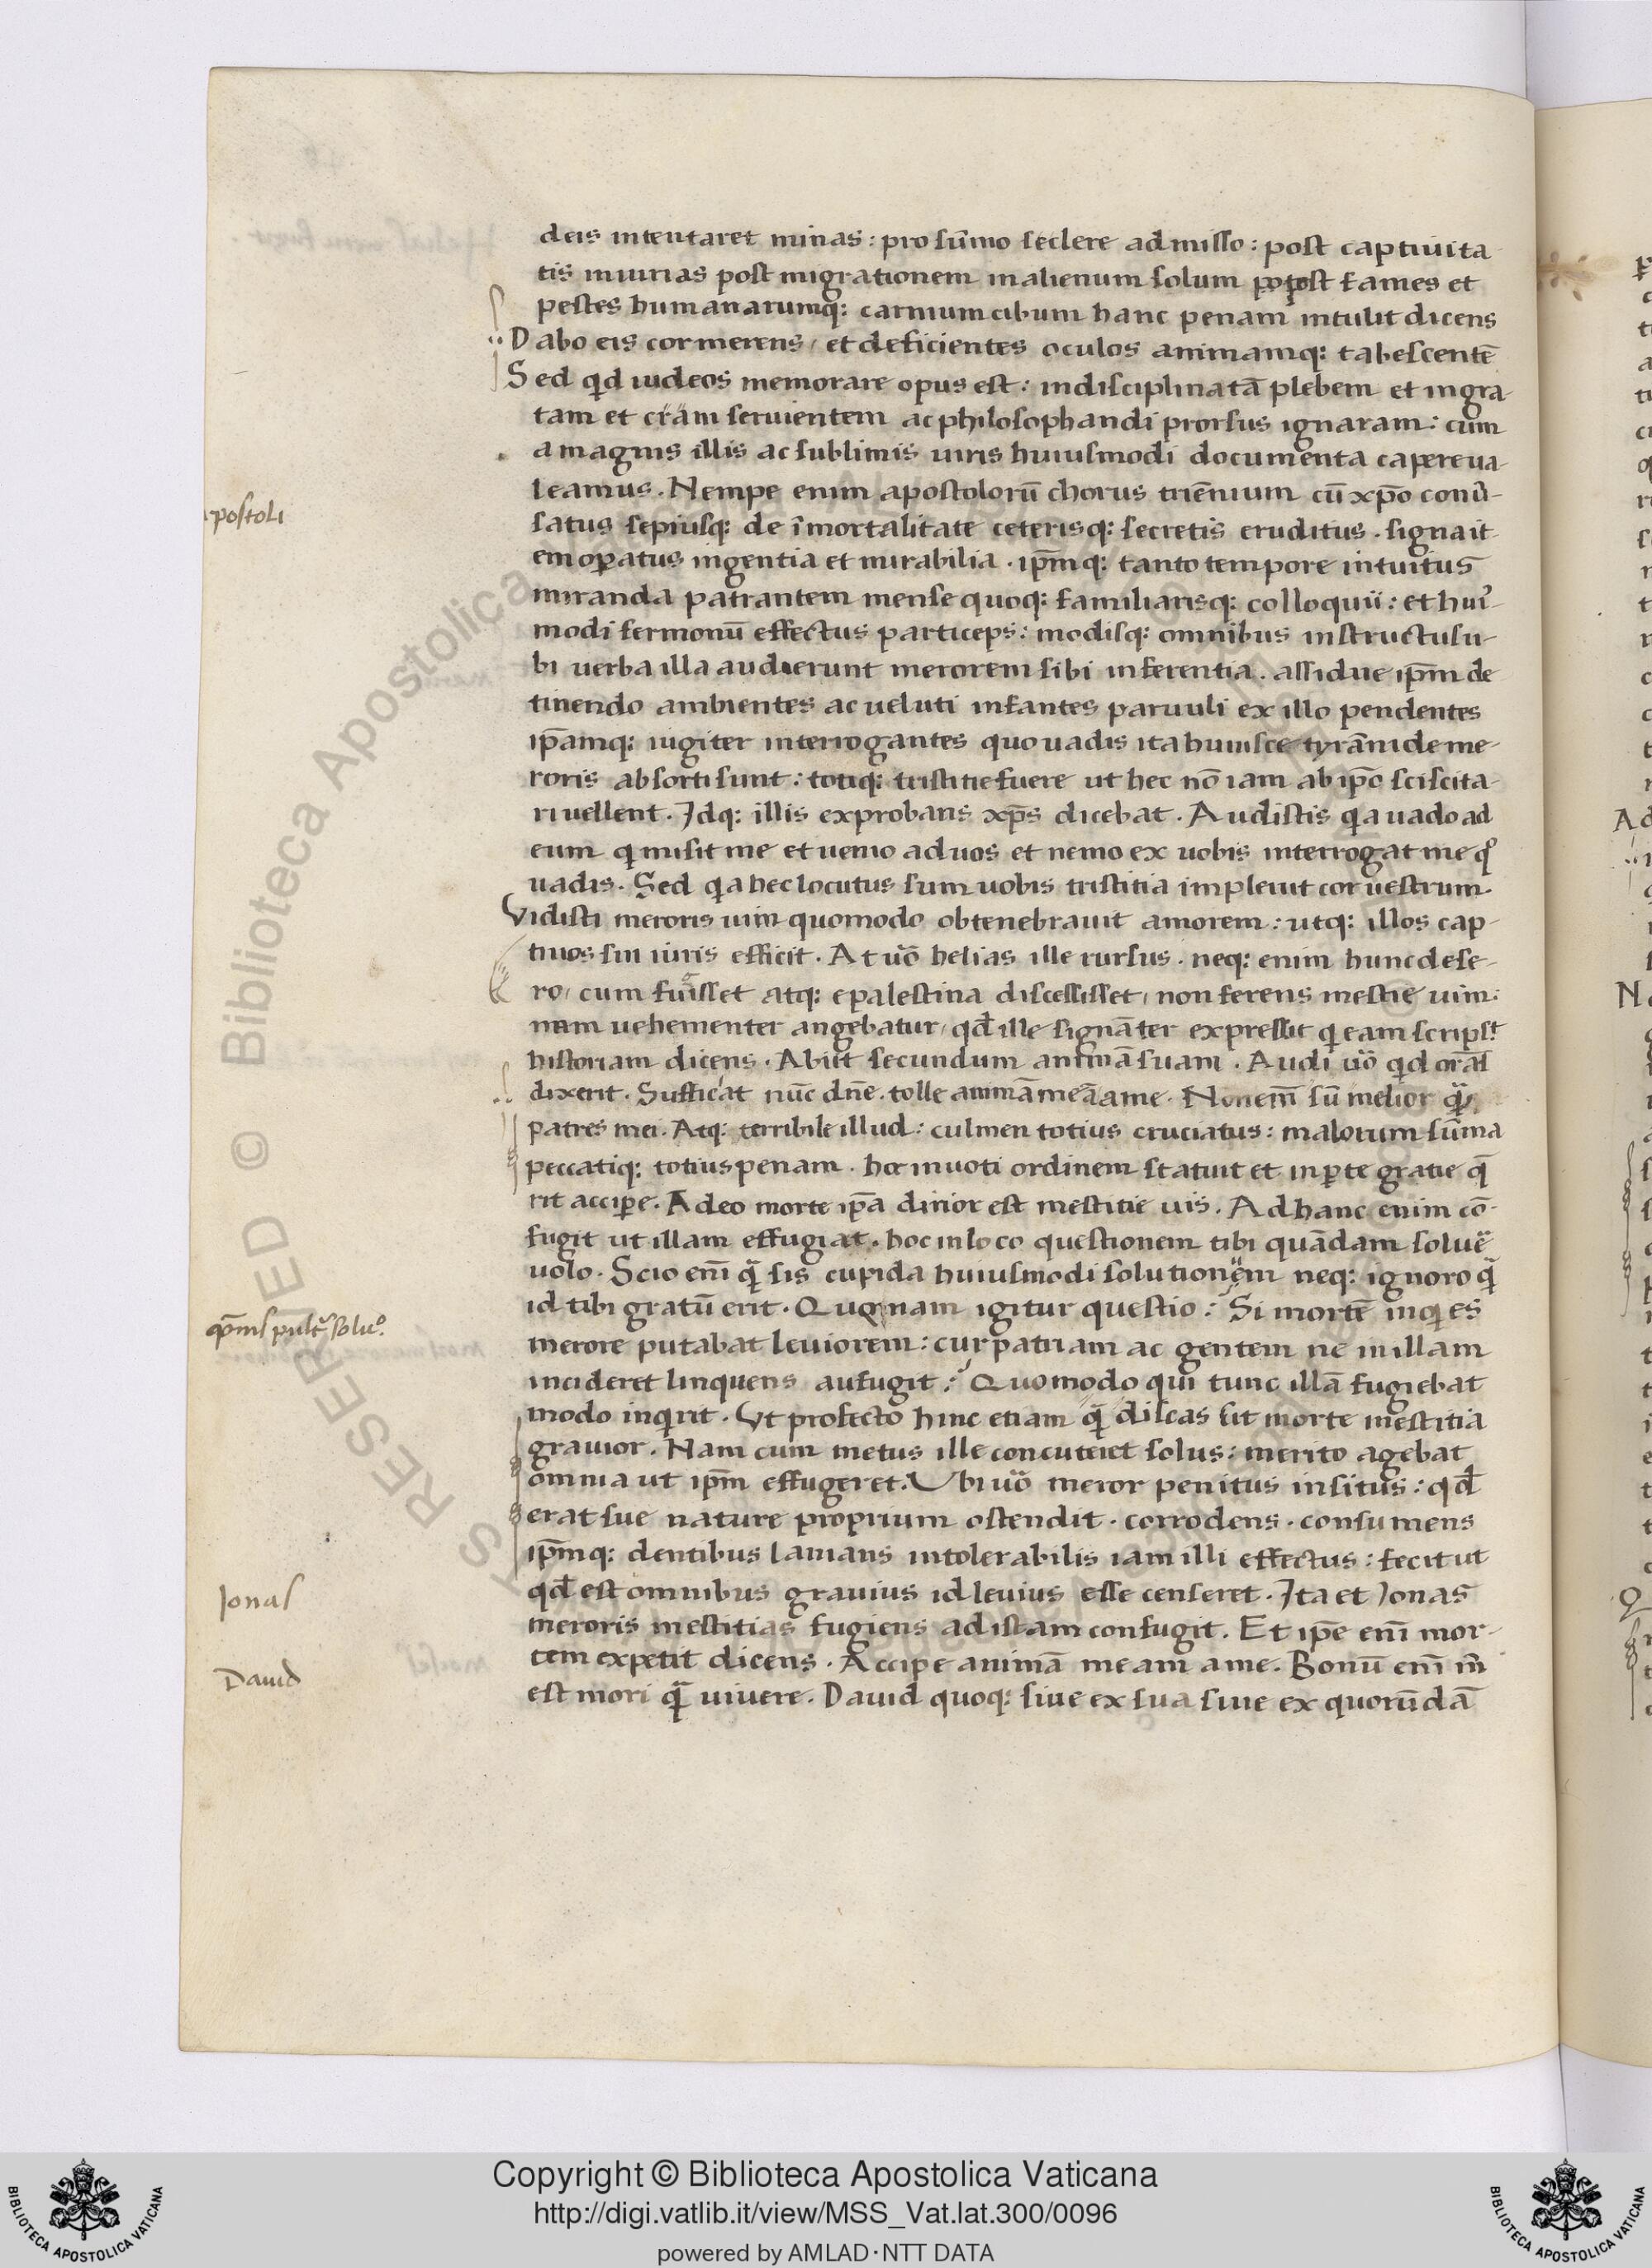 deis intentaret minas: pro sūmo scelere admisso: post captiuita-
tis iniurias post migrationem in alienum solum post fames et
pestes humanarumq; carnium cibum hanc penam intulit dicens
Dabo eis cor merens, et deficientes oculos animamq; tabescentē
Sed qd iudeos memorare opus est: indisciplinatā plebem et ingra-
tam et cràm seruientem ac philosophandi prorsus ignaram: cum
a magnis illis ac sublimis uiris huiusmodi documenta capere ua-
leamus. Nempe enim apostolorū chorus triēnium cū xp̄o conū-
Apostoli
satus sepiusq; de īmortalitate ceterisq; secretis eruditus. signa it-
em opatus ingentia et mirabilia. ip̄mq; tanto tempore intuitus
miranda patrantem mense quoq; familiarisq; colloquii: et hui'-
modi sermonū effectus particeps: modisq; omnibus instructus u-
bi uerba illa audierunt merorem sibi inferentia. assidue ip̄m de
tinendo ambientes ac ueluti infantes paruuli ex illo pendentes
ip̄amq; iugiter interrogantes quo uadis ita huiusce tyrānide me-
roris absorti sunt: totiq; tristitie fuere ut hec nō iam ab ip̄o sciscita-
ri uellent. Idq; illis exprobans xp̄s dicebat. Audistis qa uado ad
eum q misit me et uenio ad uos et nemo ex uobis interrogat me qo
uadis. Sed qa hec locutus sum uobis tristitia impleuit cor uestrum.
Vidisti meroris uim quomodo obtenebrauit amorem: utq; illos cap-
tiuos sui iuris efficit. At uō helias ille rursus. neq; enim hunc dese-
ro, cum fuisset atq; e palestina discessisset, non ferens mestie uim:
nam uehementer angebatur, qd̄ ille signāter expressit q eam scripst
historiam dicens. Abiit secundum animā suam. Audi uō qd orās
dixerit. Sufficiat nūc dn̄e. tolle animā meā a me. Non em̄ sū melior qᷓ
patres mei. Atq; terribile illud: culmen totius cruciatus: malorum sūma
peccatiq; totius penam. hoc in uoti ordinem statuit et in pte gratie q̄
rit accipe. Adeo morte ip̄a dirior est mestitie uis. Ad hanc enim cō-
fugit ut illam effugiat. hoc in loco questionem tibi quādam soluē
uolo. Scio em̄ qᷓ sis cupida huiusmodi solutionem neq; ignoro qᷓ
id tibi gratū erit. Quonam igitur questio? Si mortē inq es
qōnis pulc. soluo.
merore putabat leuiorem: cur patriam ac gentem ne in illam
incideret linquens aufugit? Quomodo qui tunc illā fugiebat
modo inqrit. Vt profecto hinc etiam qᷓ discas sit morte mestitia
grauior. Nam cum metus ille concuteret solus: merito agebat
omnia ut ip̄m effugeret. Vbi uō meror penitus insitus: qd̄
erat sue nature proprium ostendit. corrodens. consumens
ip̄mq; dentibus lanians intolerabilis iam illi effectus: fecit ut
qd̄ est omnibus grauius id leuius esse censeret. Ita et Jonas
Jonas
meroris mestitias fugiens ad istam confugit. Et ip̄e em̄ mor-
tem expetit dicens. Accipe animā meam a me. Bonū em̄ m̄
Dauid
est mori qᷓ uiuere. Dauid quoq; siue ex sua siue ex quorūdā
RESERVED © Biblioteca Apostolica
Copyright © Biblioteca Apostolica Vaticana
http://digi.vatlib.it/view/MSS_Vat.lat.300/0096
powered by AMLAD·NTT DATA
BIBLIOTECA APOSTOLICA VATICANA
BIBLIOTECA APOSTOLICA VATICANA